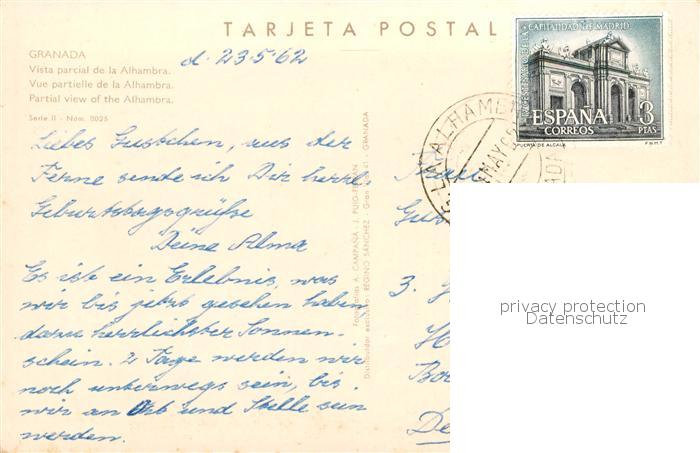 TARJETA POSTAL
GRANADA
Vista parcial de la Alhambra.
Vue partielle de la Alhambra.
Partial view of the Alhambra.
Serie II - Núm. 2025
d. 23.5.62
Liebes Gustchen, aus der
Ferne sende ich Dir herzl.
Geburtstagsgrüße
Deine Alma
Es ist ein Erlebnis, was
wir bis jetzt gesehen haben
dazu herrlichster Sonnen-
schein. 2 Tage werden wir
noch unterwegs sein, bis
wir an Ort und Stelle sein
werden.
A. CAMPAÑA - J. PUIG-FERRAN
Distribuidor exclusivo: REGINO SANCHEZ - Gran Vía, 41 - GRANADA
CAPITALIDAD DE MADRID
3
PTAS
ESPAÑA
CORREOS
PUERTA DE ALCALA
F.N.M.T.
LA ALHAM
MAY 62
Frau
3.
privacy protection
Datenschutz